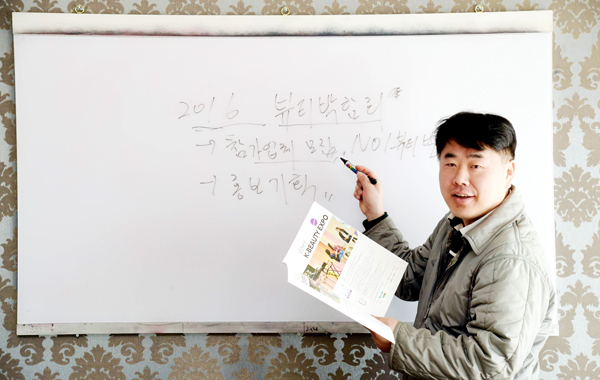 2016 뷰티박람회
→ 참가업체 모집, NO1 뷰티박
→ 홍보기획,,
K-BEAUTY EXPO